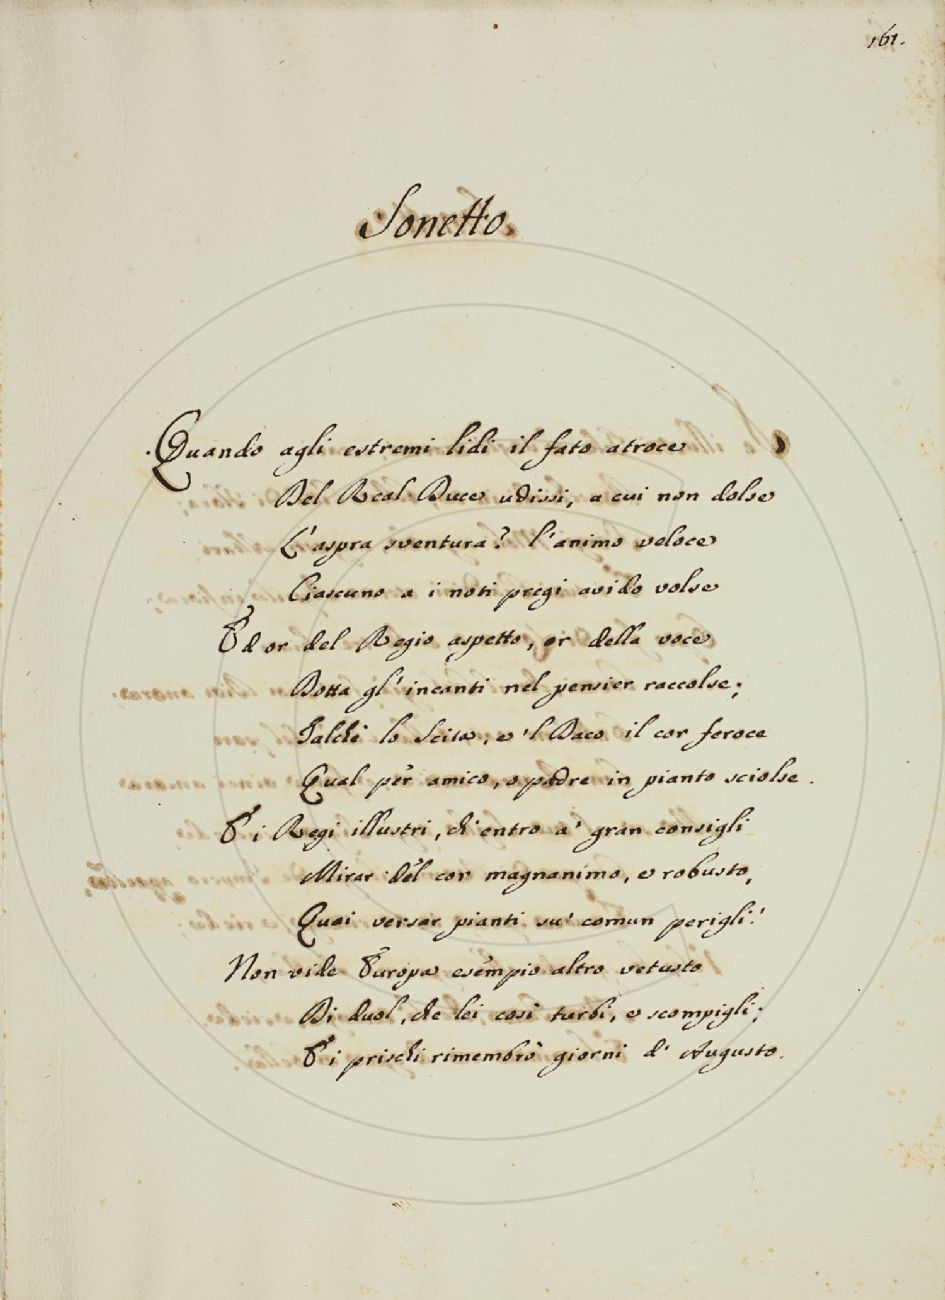 161.
Sonetto.
Quando agli estremi lidi il fato atroce
Del Real Duce udissi, a cui non dolse
L'aspra sventura? l'animo veloce
Ciascuno a i noti pregi avido volse
Ed or del Regio aspetto, or della voce
Dotta gl'incanti nel pensier raccolse;
Talchè lo Scita, e 'l Daco il cor feroce
Qual per amico, o padre in pianto sciolse.
E i Regi illustri, ch'entro a' gran consigli
Mirar del cor magnanimo, e robusto,
Quai versar pianti su' comun perigli!
Non vide Europa esempio altro vetusto
Di duol, che lei così turbi, e scompigli;
E i prischi rimembrò giorni d'Augusto.